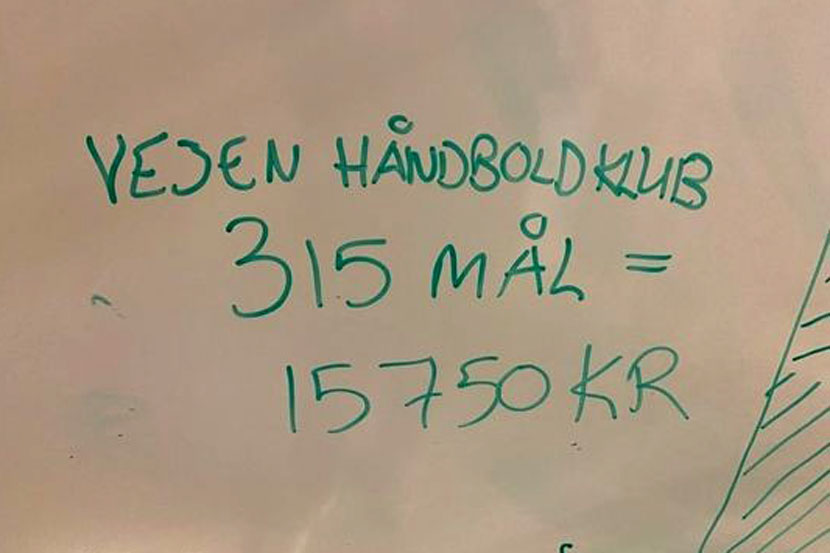 VEJEN HÅNDBOLDKLUB
315 MÅL =
15750 KR